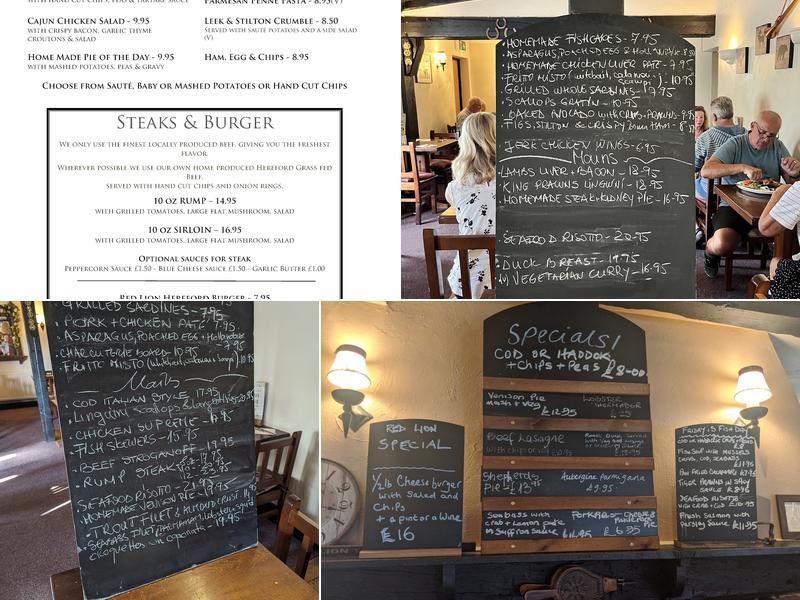 WITH HAND CUT CHIPS, PEAS & TARTARE SAUCE
PARMESAN PENNE PASTA - 8.95(V)
CAJUN CHICKEN SALAD - 9.95
WITH CRISPY BACON, GARLIC THYME
CROUTONS & SALAD
LEEK & STILTON CRUMBLE - 8.50
SERVED WITH SAUTÉ POTATOES AND A SIDE SALAD
(V)
HOME MADE PIE OF THE DAY - 9.95
WITH MASHED POTATOES, PEAS & GRAVY
HAM, EGG & CHIPS - 8.95
CHOOSE FROM SAUTÉ, BABY OR MASHED POTATOES OR HAND CUT CHIPS
STEAKS & BURGER
WE ONLY USE THE FINEST LOCALLY PRODUCED BEEF, GIVING YOU THE FRESHEST
FLAVOR.
WHEREVER POSSIBLE WE USE OUR OWN HOME PRODUCED HEREFORD GRASS FED
BEEF.
SERVED WITH HAND CUT CHIPS AND ONION RINGS.
10 OZ RUMP – 14.95
WITH GRILLED TOMATOES, LARGE FLAT MUSHROOM, SALAD
10 OZ SIRLOIN – 16.95
WITH GRILLED TOMATOES, LARGE FLAT MUSHROOM, SALAD
OPTIONAL SAUCES FOR STEAK
PEPPERCORN SAUCE £1.50 - BLUE CHEESE SAUCE £1.50 - GARLIC BUTTER £1.00
RED LION HEREFORD BURGER - 7.95
HOMEMADE FISHCAKES - 7.95
ASPARAGUS, POACHED EGG & HOLLANDAISE 8.50
HOMEMADE CHICKEN LIVER PATE - 7.95
FRITO MISTO (whitbait, calamari, scampi) - 10.95
GRILLED WHOLE SARDINES - 7.95
SCALLOPS GRATIN - 10.95
BAKED AVOCADO WITH CRAB, PRAWNS - 9.95
FIGS, STILTON & CRISPY PARMA HAM - 8.95
CHICKEN WINGS - 6.95
Mains
LAMBS LIVER + BACON - 18.95
KING PRAWNS LINGUINI - 18.95
HOMEMADE STEAK + KIDNEY PIE - 16.95
SEAFOOD RISOTTO - 20.95
DUCK BREAST - 19.95
(V) VEGETARIAN CURRY - 16.95
GRILLED SARDINES - 7.95
PORK + CHICKEN PATE 7.95
ASPARAGUS, POACHED EGG + Hollandaise
CHARCUTERIE BOARD - 10.95
FRITTO MISTO
Mains
COD ITALIAN STYLE 17.95
Linguini scallops &
CHICKEN SUPREME -
FISH SKEWERS - 15.95
BEEF STROGANOFF - 19.95
RUMP STEAK
SEAFOOD RISOTTO - 21.95
HOMEMADE VENISON PIE - 19.95
TROUT FILLET & ALMOND CRUST
SEABASS FILLET,
croquettes on asparagus - 19.95
RED LION
SPECIAL
1/2 lb Cheeseburger
with Salad and
Chips
+ a pint or a Wine
£16
Specials!
COD OR HADDOK
+ Chips + Peas £8-00
Venison Pie
mash + veg
£12.95
LOBSTER
THERMADOR
Beef Lasagne
with chips or veg
Shepherds
Pie £13.95
Aubergine Parmigana
£9.95
Seabass with
crab + Lemon
in Saffron Sauce £16.95
£6.95
FRIDAY IS FISH DAY
FISH SOUP WITH MUSSELS
CRAB, COD,
£11.95
PAN FRIED CALAMARI £7.95
TIGER PRAWNS IN
SAUCE £8.95
SEAFOOD RISOTTO
Fresh Salmon with
parsley Sauce £11.95
LION